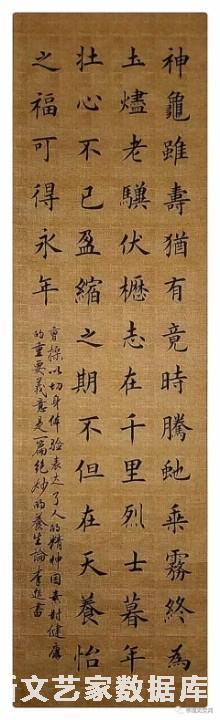 神龜雖壽猶有竟時騰虵乘霧終為
土燼老驥伏櫪志在千里烈士暮年
壯心不已盈縮之期不但在天養怡
之福可得永年
曹操以切身体验表达了人的精神因素对健康
的重要義意是一篇绝妙的養生論李進書
文艺家数据库